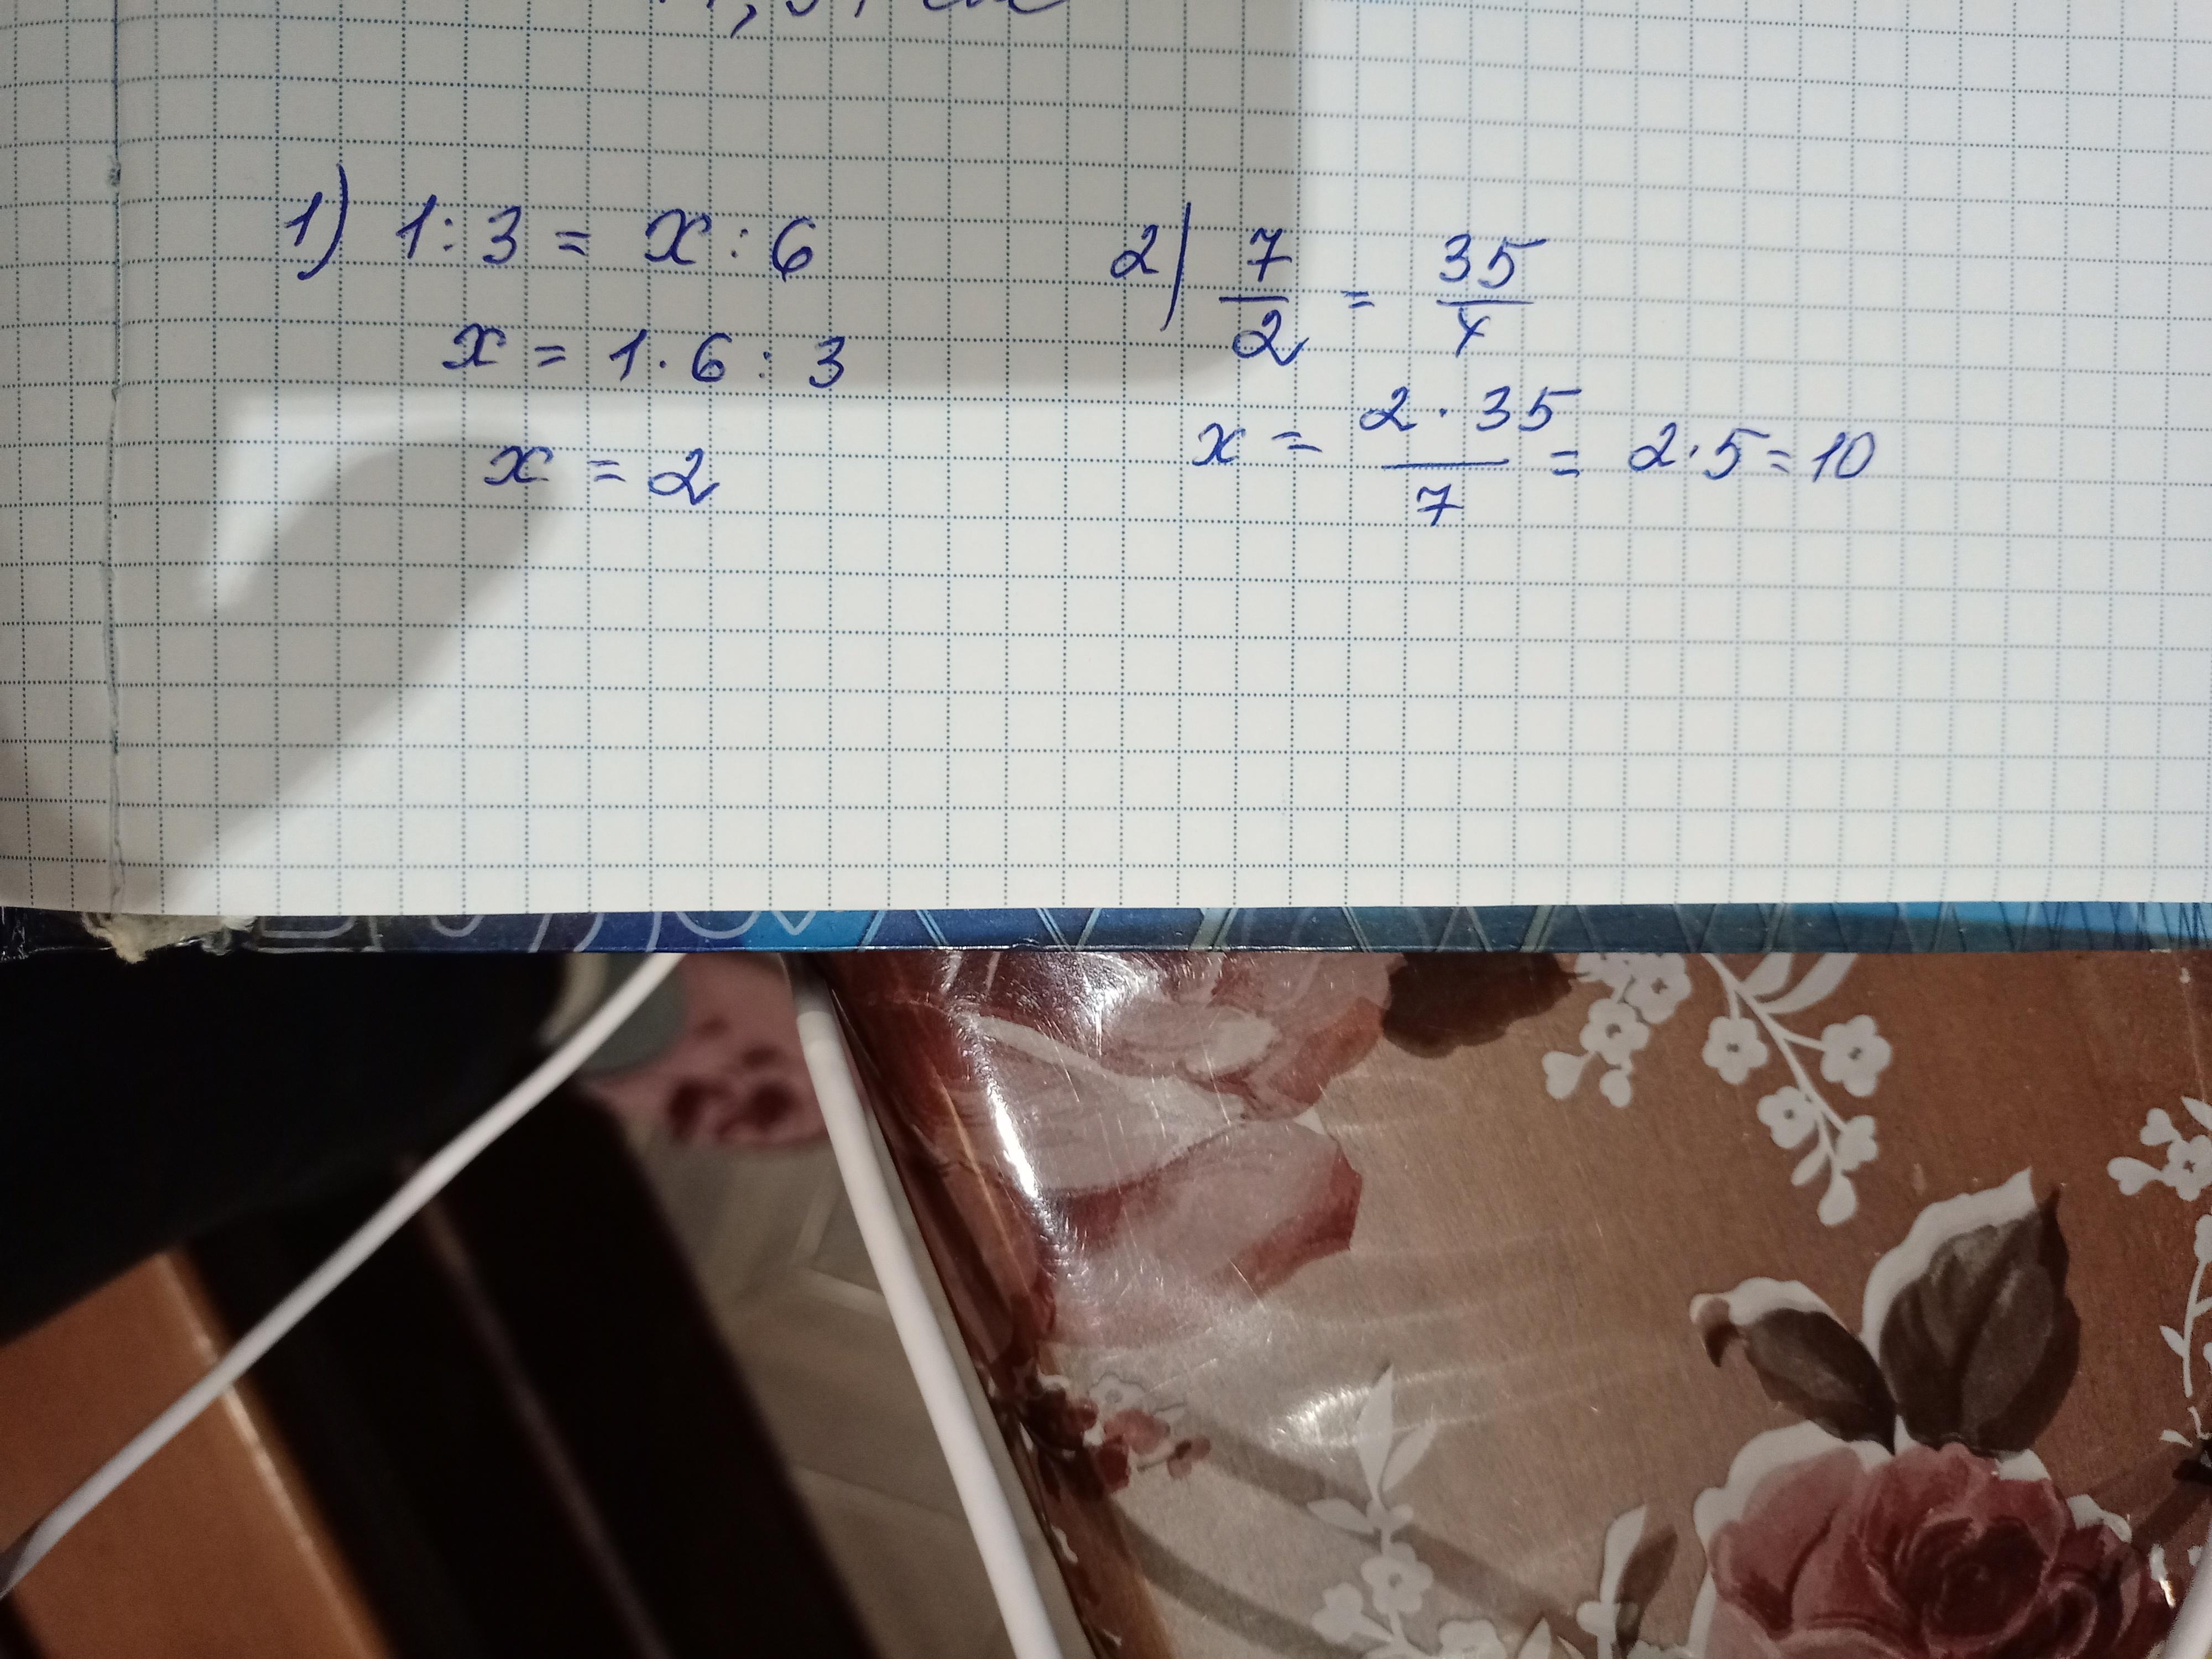 1) 1 : 3 = x : 6
x = 1 · 6 : 3
x = 2
2) 7/2 = 35/y
x = 2 · 35/7 = 2 · 5 = 10